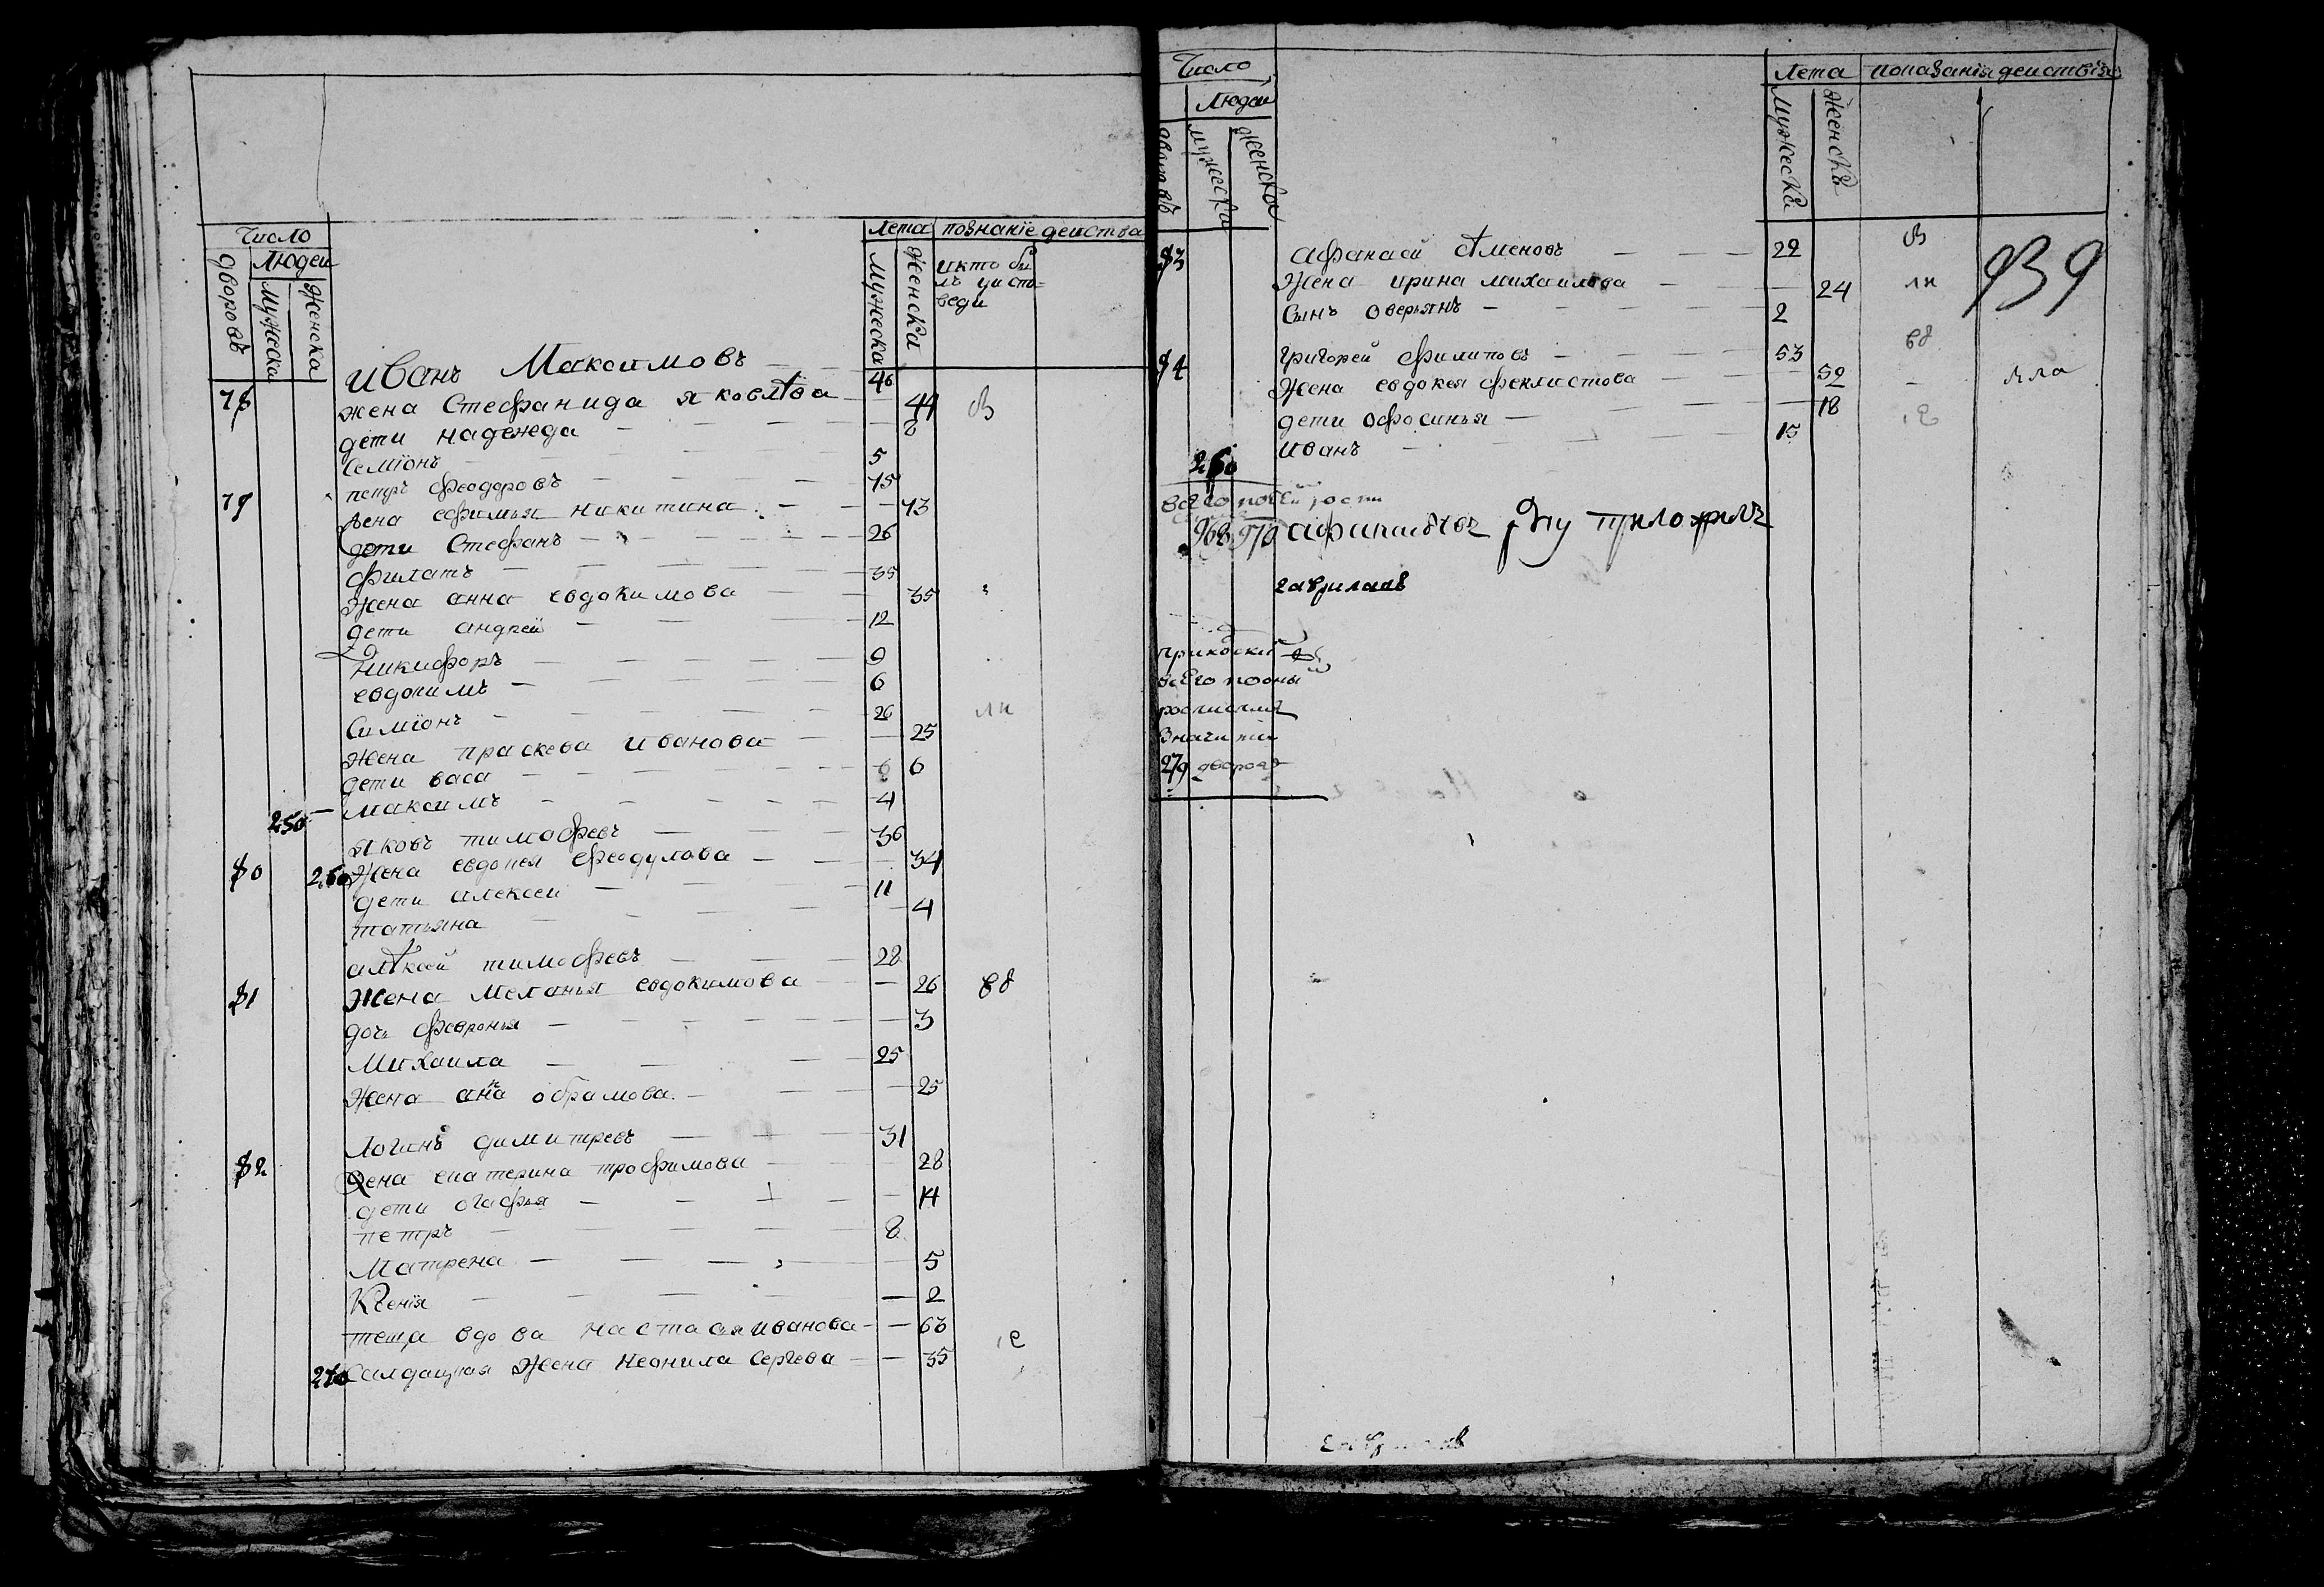 Число
Людеи
дворовъ
мужеска
женска
Лета
познаніе деиства
мужеска
женска
и кто бы
лъ у испо-
веди
78 иванъ Максимовъ 46
жена Стефанида яковлева 44 св
дети надежда 8
Семіонъ 5
79 петръ феодоровъ 75
жена ефимья никитина 73
дети Стефанъ 26
филатъ 35
Жена анна евдокимова 35
дети андрей 12
никифоръ 9
евдокимъ 6
Симіонъ 26 ли
жена праскева иванова 25
дети васа 6
максимъ 4
250
80 яковъ тимофеевъ 36
260 жена евдокея феодулова 34
дети алексеи 11
татьяна 4
81 алексей тимофеевъ 28
жена меланья евдокимова 26 ев
дочь февронья 3
Михаила 25
жена анна обрамова 25
82 логинъ димитревъ 31
жена екатерина трофимова 28
дети огафья 14
петръ 8
Матрена 5
Ксенія 2
теща вдова настасия иванова 63
270 Салдацкая жена неонила сергева 35
Число
Людеи
дворовъ
мужеска
женска
Лета
показанія деиствія
мужеска
женска
939
83 афанасей семеновъ 22 св
жена ирина михаилова 24 ли
Сынъ оверьянъ 2
84 григорей филиповъ 53 ев
жена евдокея феклистова 52
дети офросинья 18
иванъ 15
260
968 970
руку приложилъ
гавриловъ
всего по оны
росписямъ
значитъ
279 дворовъ